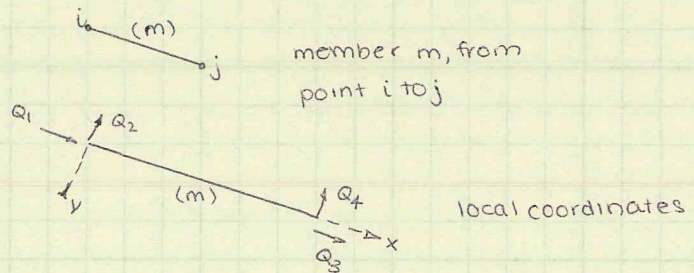 i (m) j
member m, from
point i to j
Q1 Q2
y (m) Q4
local coordinates
x
Q3